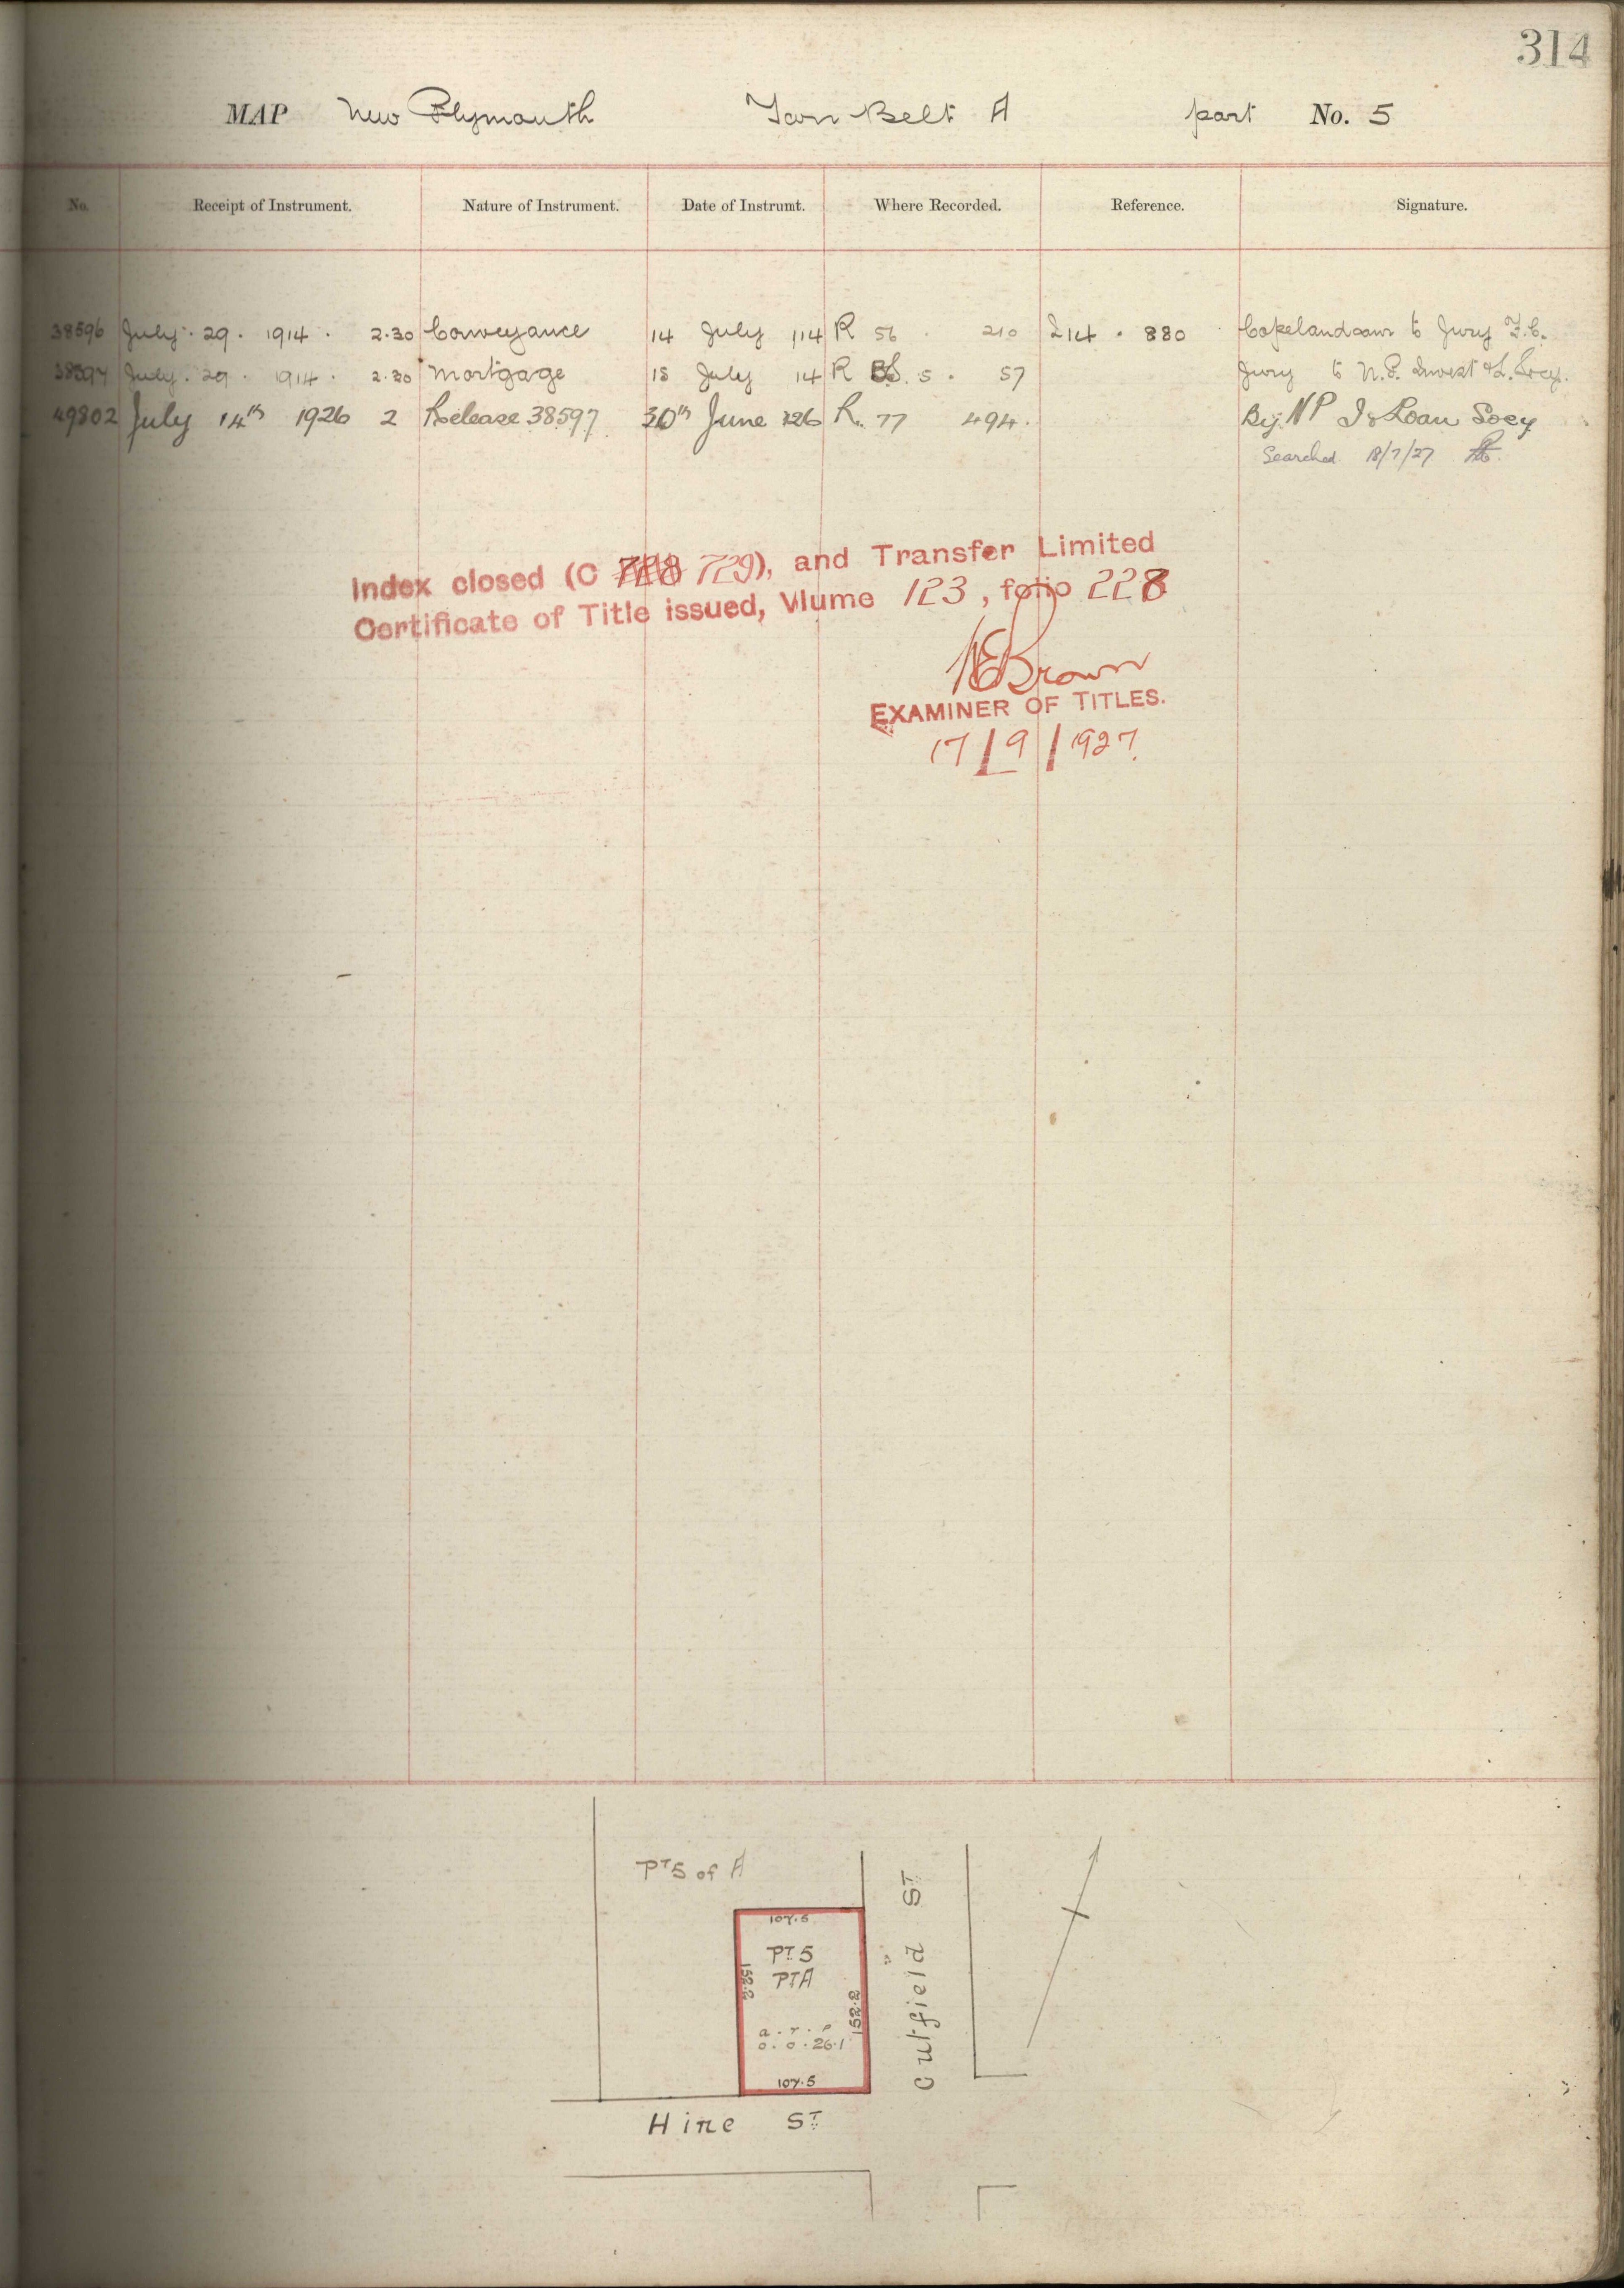 314
MAP New Plymouth Town Belt A part No. 5
No. Receipt of Instrument. Nature of Instrument. Date of Instrumt. Where Recorded. Reference. Signature.
38596 July. 29. 1914. 2.30 Conveyance 14 July 14 R 56 210 214. 880 to Jury F.C.
38597 July. 29. 1914. 2.30 Mortgage 15 July 14 R 5. 57 Jury to N.P. Invest & L. Socy.
49802 July 14th 1926 2 Release 38597 30th June 26 R. 77 494. By NP I & Loan Socy
Searched 18/7/27
Index closed (C 728 729), and Transfer Limited
Certificate of Title issued, Vlume 123, folio 228
Brown
EXAMINER OF TITLES.
17/9/1927.
PT 5 of A
107.5
PT. 5
PTA
152.2
152.2
a. r. p
0. 0. 26.1
107.5
Cutfield ST
Hine ST